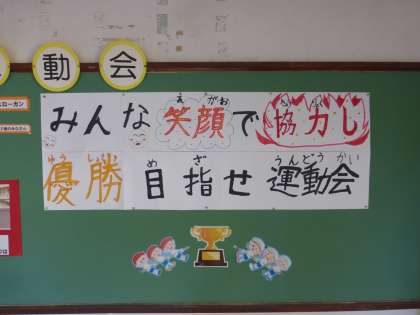 動会
スローガン
みんな笑顔で協力し
えがお
きょうりょく
優勝目指せ運動会
ゆうしょうめざうんどうかい